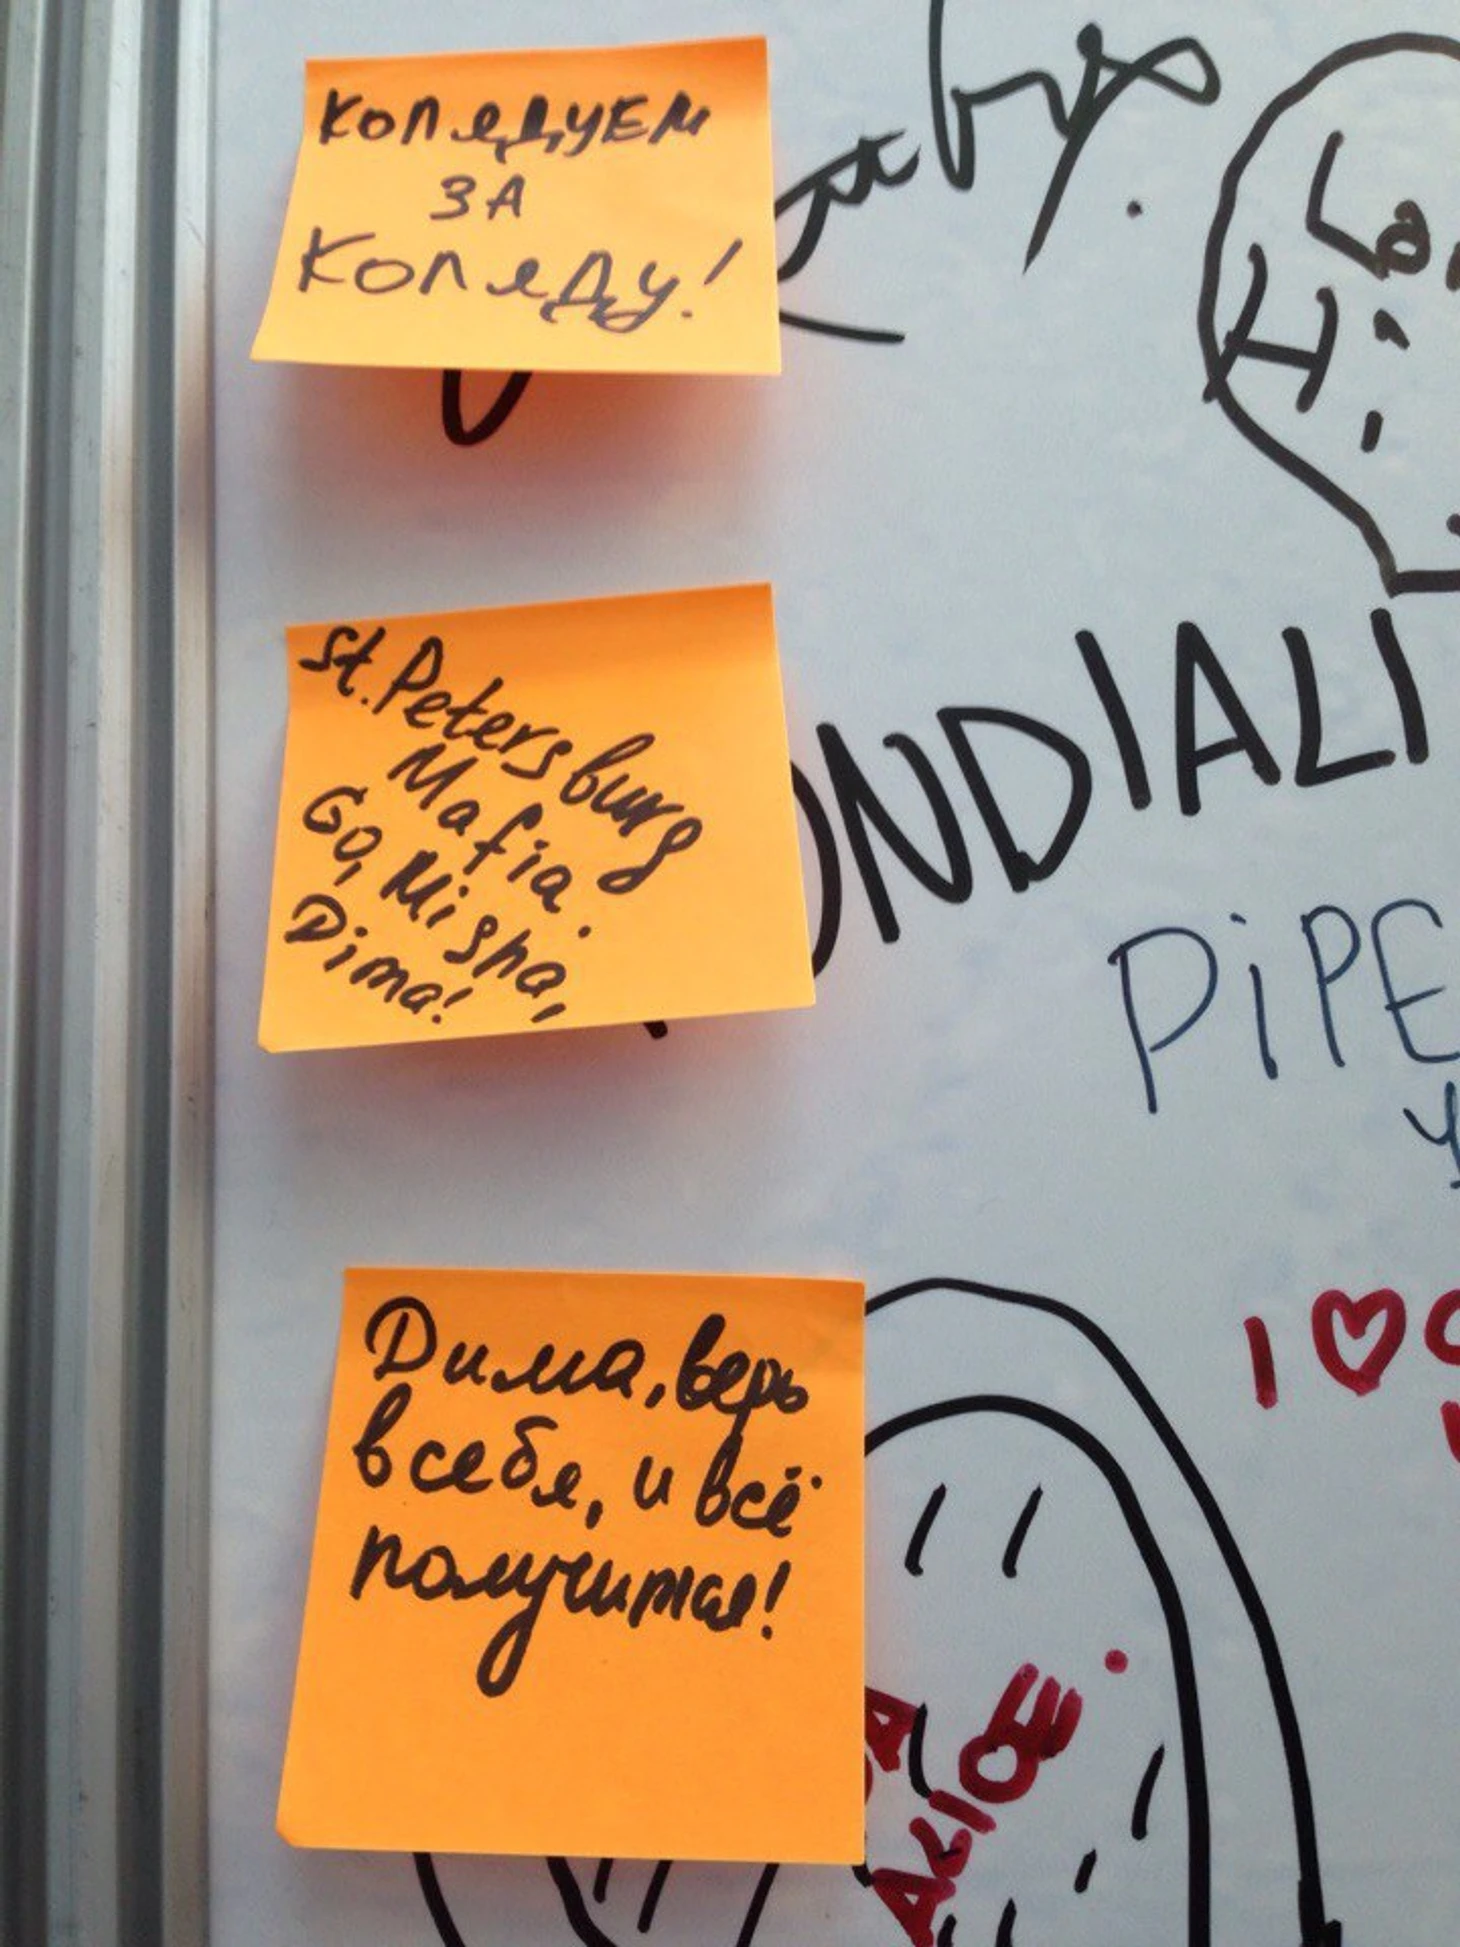 КОЛЯДУЕМ
ЗА
КОЛЯДУ!
St. Petersburg
Mafia.
Go, Misha,
Dima!
Дима, верь
в себя, и всё
получится!
ONDIALI
PiPE
I ♥
ALICE